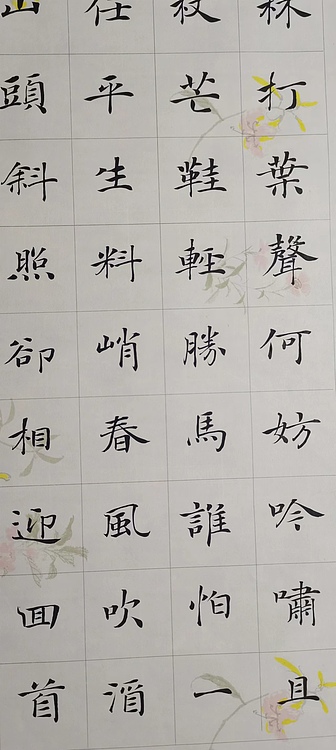 林打葉聲何妨吟嘯且
杖芒鞋輕勝馬誰怕一
任平生料峭春風吹酒
山頭斜照卻相迎回首